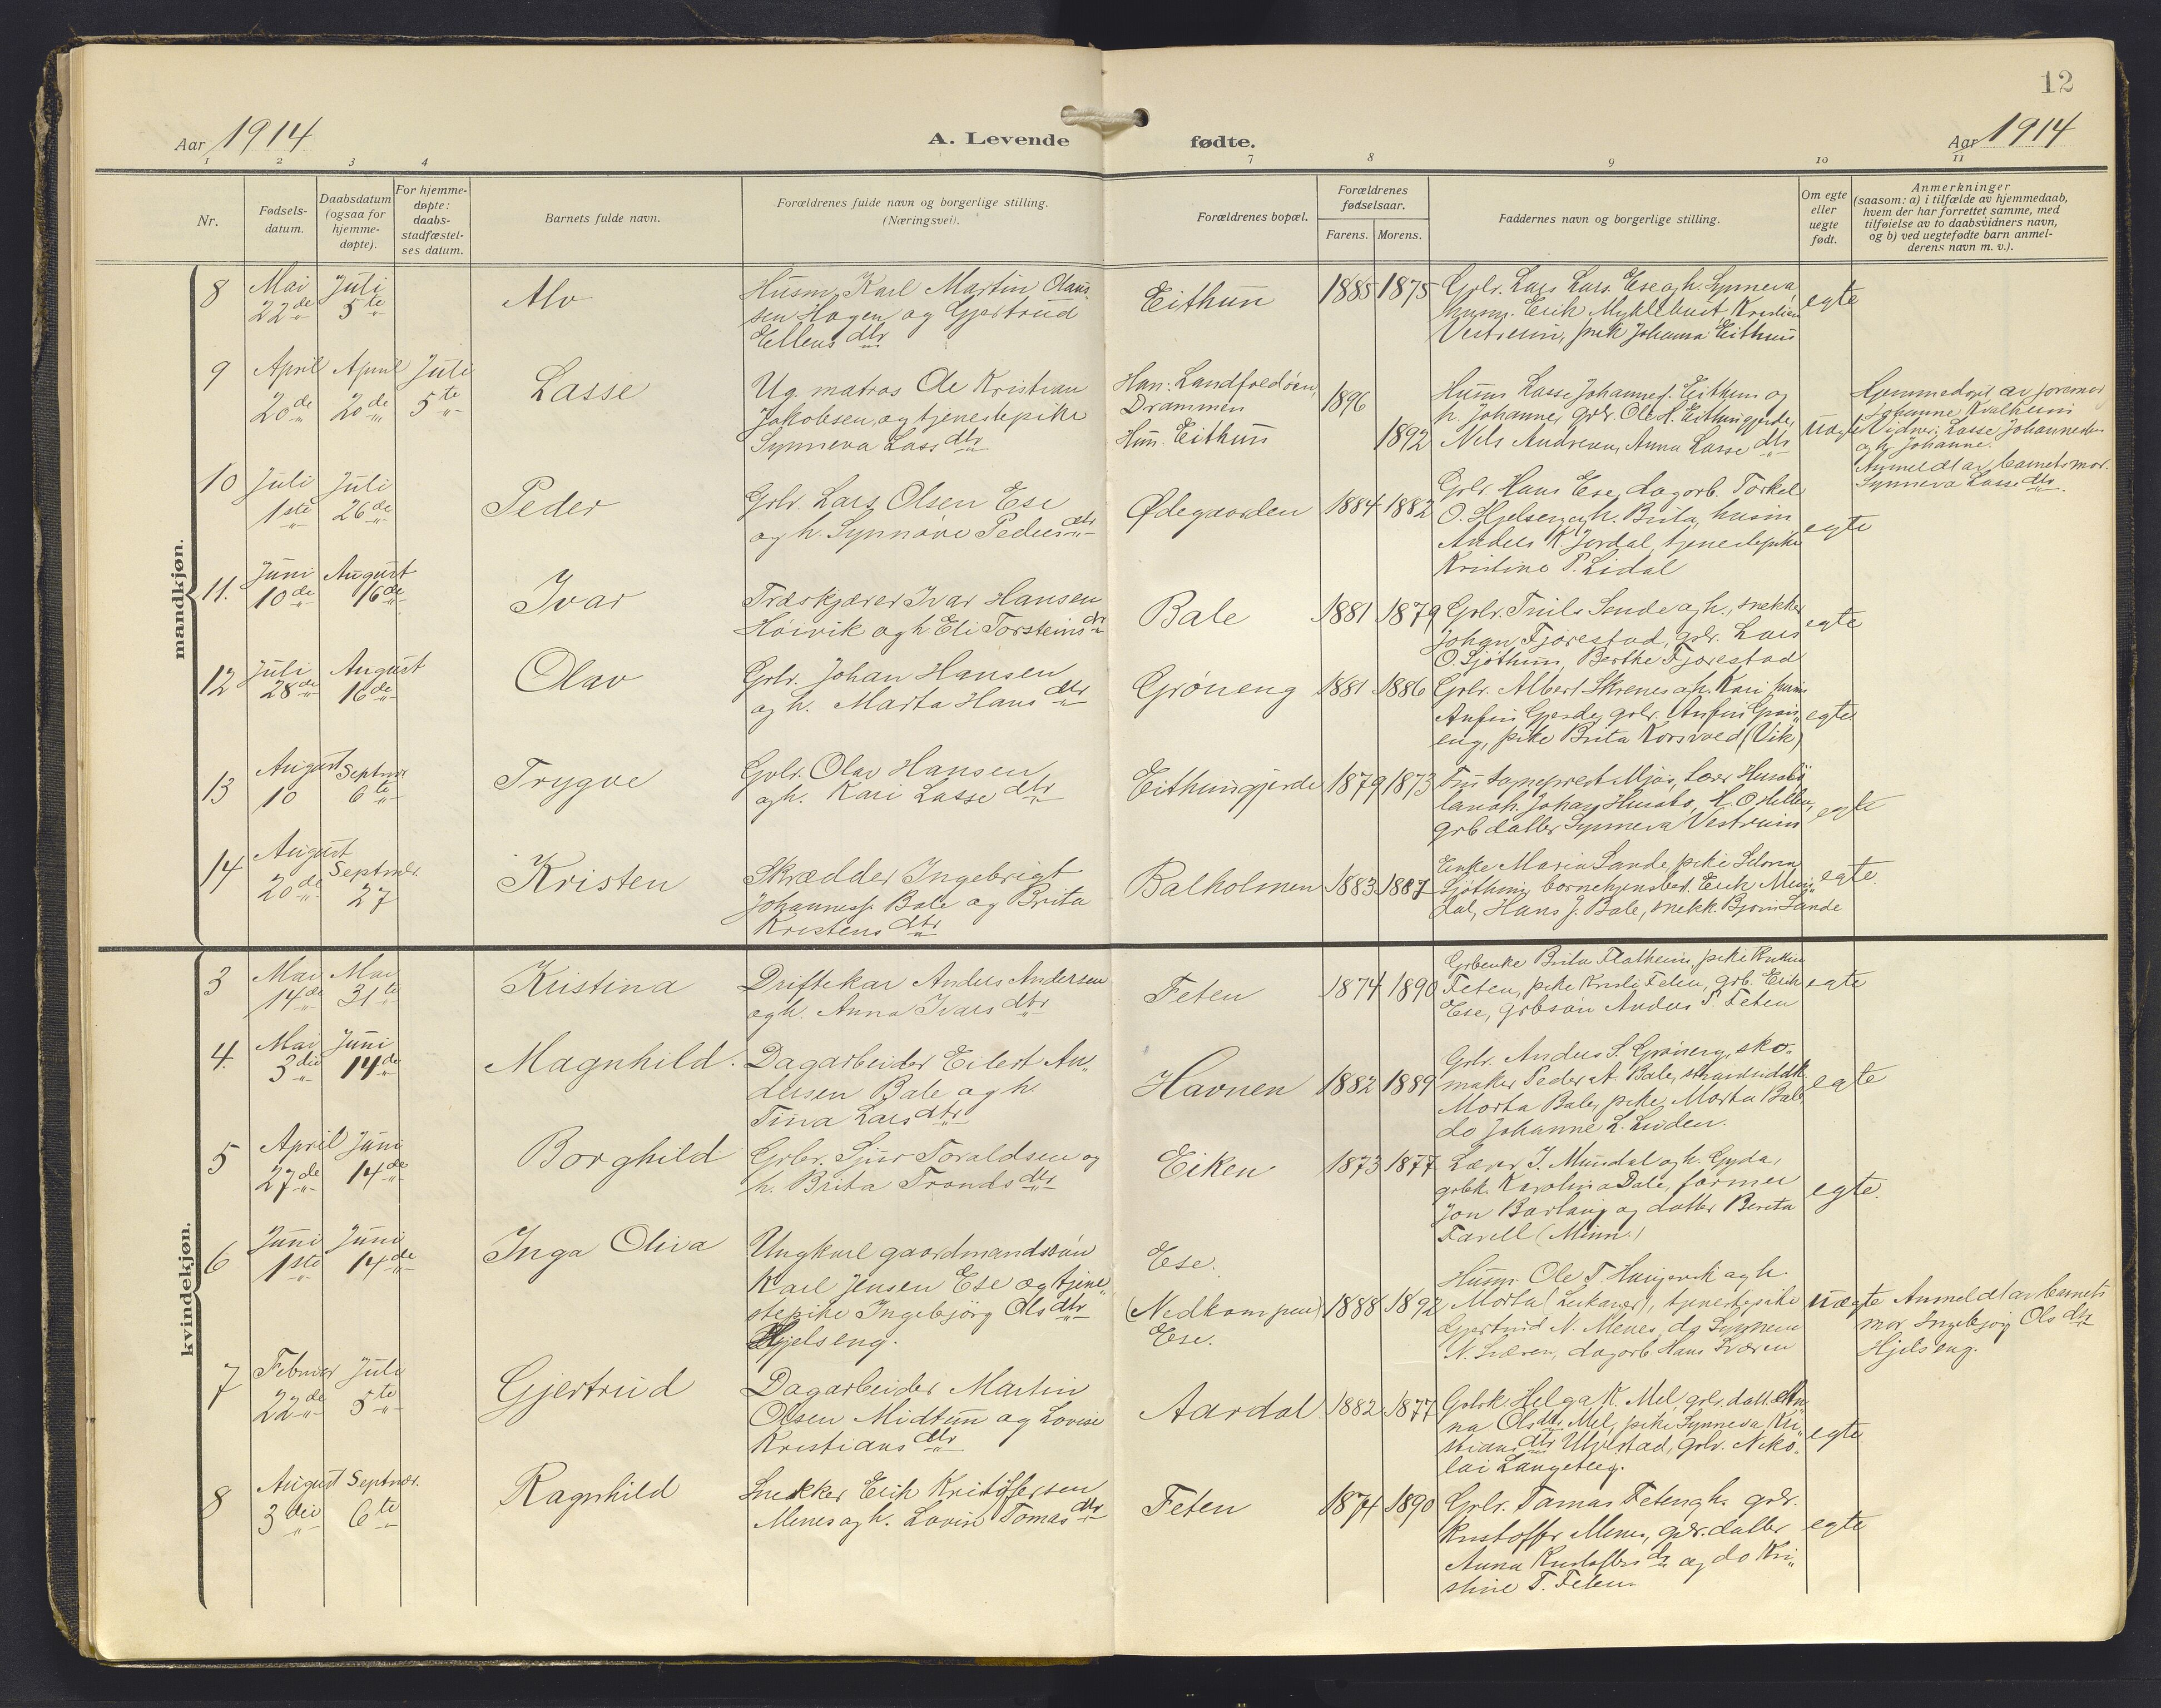 12
Aar 1914
A. Levende fødte.
Aar 1914
1 2 3 4 7 8 9 10 11
Nr.
Fødsels-
datum.
Daabsdatum
(ogsaa for
hjemme-
døpte).
For hjemme-
døpte:
daabs-
stadfæstel-
ses datum.
Barnets fulde navn.
Forældrenes fulde navn og borgerlige stilling.
(Næringsvei).
Forældrenes bopæl.
Forældrenes
fødselsaar.
Farens. Morens.
Faddernes navn og borgerlige stilling.
Om egte
eller
uegte
født.
Anmerkninger
(saasom: a) i tilfælde av hjemmedaab,
hvem der har forrettet samme, med
tilføielse av to daabsvidners navn,
og b) ved uegtefødte barn anmel-
derens navn m. v.).
mandkjøn.
8
Mai
22de
Juli
5te
Alv
Husm. Karl Martin Olaus-
sen Hagen og Gjertrud
Ellens dtr
Eithun
1885 1875
Grbr. Lars Lars. Ese og h. Synneva,
husm. Erik Myklebust, Kristian
Vestreim, pike Johanna Eithun
egte
9
April
20de
April
20de
Juli
5te
Lasse
Ug. matros Ole Kristian
Jakobsen, og tjenestepike
Synneva Lass dtr
Han: Landfaldøen,
Drammen
Hun: Eithun
1896
1892
Husm Lasse Johannes. Eithun og
h. Johanne, grbr. Ole H. Eithungjerde,
Nils Andresen, Anna Lasse dtr
uegte
Hjemmedøpt av jormor
Johanne Kvalheim
Vidner: Lasse Johannesen
og h. Johanne.
Anmeldt av barnets mor
Synneva Lasse dtr.
10
Juli
1ste
Juli
26de
Peder
Grbr. Lars Olsen Ese
og h. Synnøve Peders dtr
Ødegaarden
1884 1882
Grbr. Hans Ese, dagarb. Torkel
O. Hjelseng og h. Brita, husm.
Anders K. Jordal, tjenestepike
Kristine P. Lidal
egte
11.
Juni
10de
August
16de
Ivar
Træskjærer Ivar Hansen
Høivik og h. Eli Torsteins dtr
Bale
1881 1879
Grbr. Truls Sande og h., snekker
Johan Fjørestad, grbr. Lars
O. Sjøthun, Berthe Fjørestad
egte
12
Juli
28de
August
16de
Olav
Grbr. Johan Hansen
og h. Marta Hans dtr
Grøneng
1881 1886
Grbr. Albert Skrenes og h. Kari, husm
Anfin Gjerde, grbr. Anfin Grøn-
eng, pike Brita Korsved (Vik)
egte
13
August
10
Septmbr
6te
Trygve
Grbr. Olav Hansen
og h. Kari Lasse dtr
Eithungjerde
1879 1873
Fru sogneprest Mjøs, Lærer Husabø
Johan Husabø, H. O. Hellen,
grb datter Synneva Vestreim
egte
14
August
20de
Septmbr.
27
Kristen
Skrædder Ingebrigt
Johanness. Bale og Brita
Kristens dtr
Balholmen
1883 1887
Enke Maria Sande, pike
Sjøthun, Erik Mun-
dal, Hans J. Bale, snekk. Bjørn Sande
egte.
kvindekjøn.
3
Mai
14de
Mai
31te
Kristina
Driftekar Anders Andersen
og h. Anna Ivars dtr
Feten
1874 1890
Grbenke Brita Flatheim, pike
Feten, pike Kristi Feten, grb. Erik
Ese, grbsøn Anders P. Feten
egte
4.
Mai
3die
Juni
14de
Magnhild.
Dagarbeider Eilert An-
dersen Bale og h.
Tina Lars dtr
Havnen
1882 1889
Grbr. Anders S. Grøneng, sko-
maker Peder A. Bale,
Marta Bale, pike, Marta Bale
do Johanne L. Linden.
egte
5
April
27de
Juni
14de
Borghild
Grbr. Sjur Toraldsen og
h. Brita Tronds dtr
Eiken
1873 1877
Lærer J. Mundal og h. Gyda,
grbk. Karolina Dale, farmer
Jon Barlaug og datter Berita
Farell (Minn.)
egte.
6
Juni
1ste
Juni
14de
Inga Oliva
Ungkarl gaardmandssøn
Karl Jensen Ese og tjene-
stepike Ingebjørg Ols dtr
Hjelseng.
Ese.
(Nedkom paa)
Ese.
1888 1892
Husm. Ole T. og h.
Marta (Leikanger), tjenestepike
Gjertrud N. Menes, do Synneva
N. Sværen, dagarb. Hans Sværen
uegte
Anmeldt av barnets
mor, Ingebjørg Ols dtr
Hjelseng.
7
Februar
22de
Juli
5te
Gjertrud
Dagarbeider Martin
Olsen Midtun og Lovise
Kristians dtr
Aardal
1882 1877
Grbk. Helga K. Mel, grbr. datt. An-
na Ols dtr Mel, pike Synneva Kri-
stians dtr Ulvestad, grbr. Niko-
lai Langeteig.
egte
8
August
3die
Septmbr.
6te
Ragnhild
Snekker Erik Kristoffersen
Menes og h. Lovise Tomas dtr
Feten
1874 1890
Grbr. Tomas Feten og h. grbr.
Kristoffer Menes, grbr. datter
Anna Kristoffers dr og do Kri-
stine T. Feten.
egte